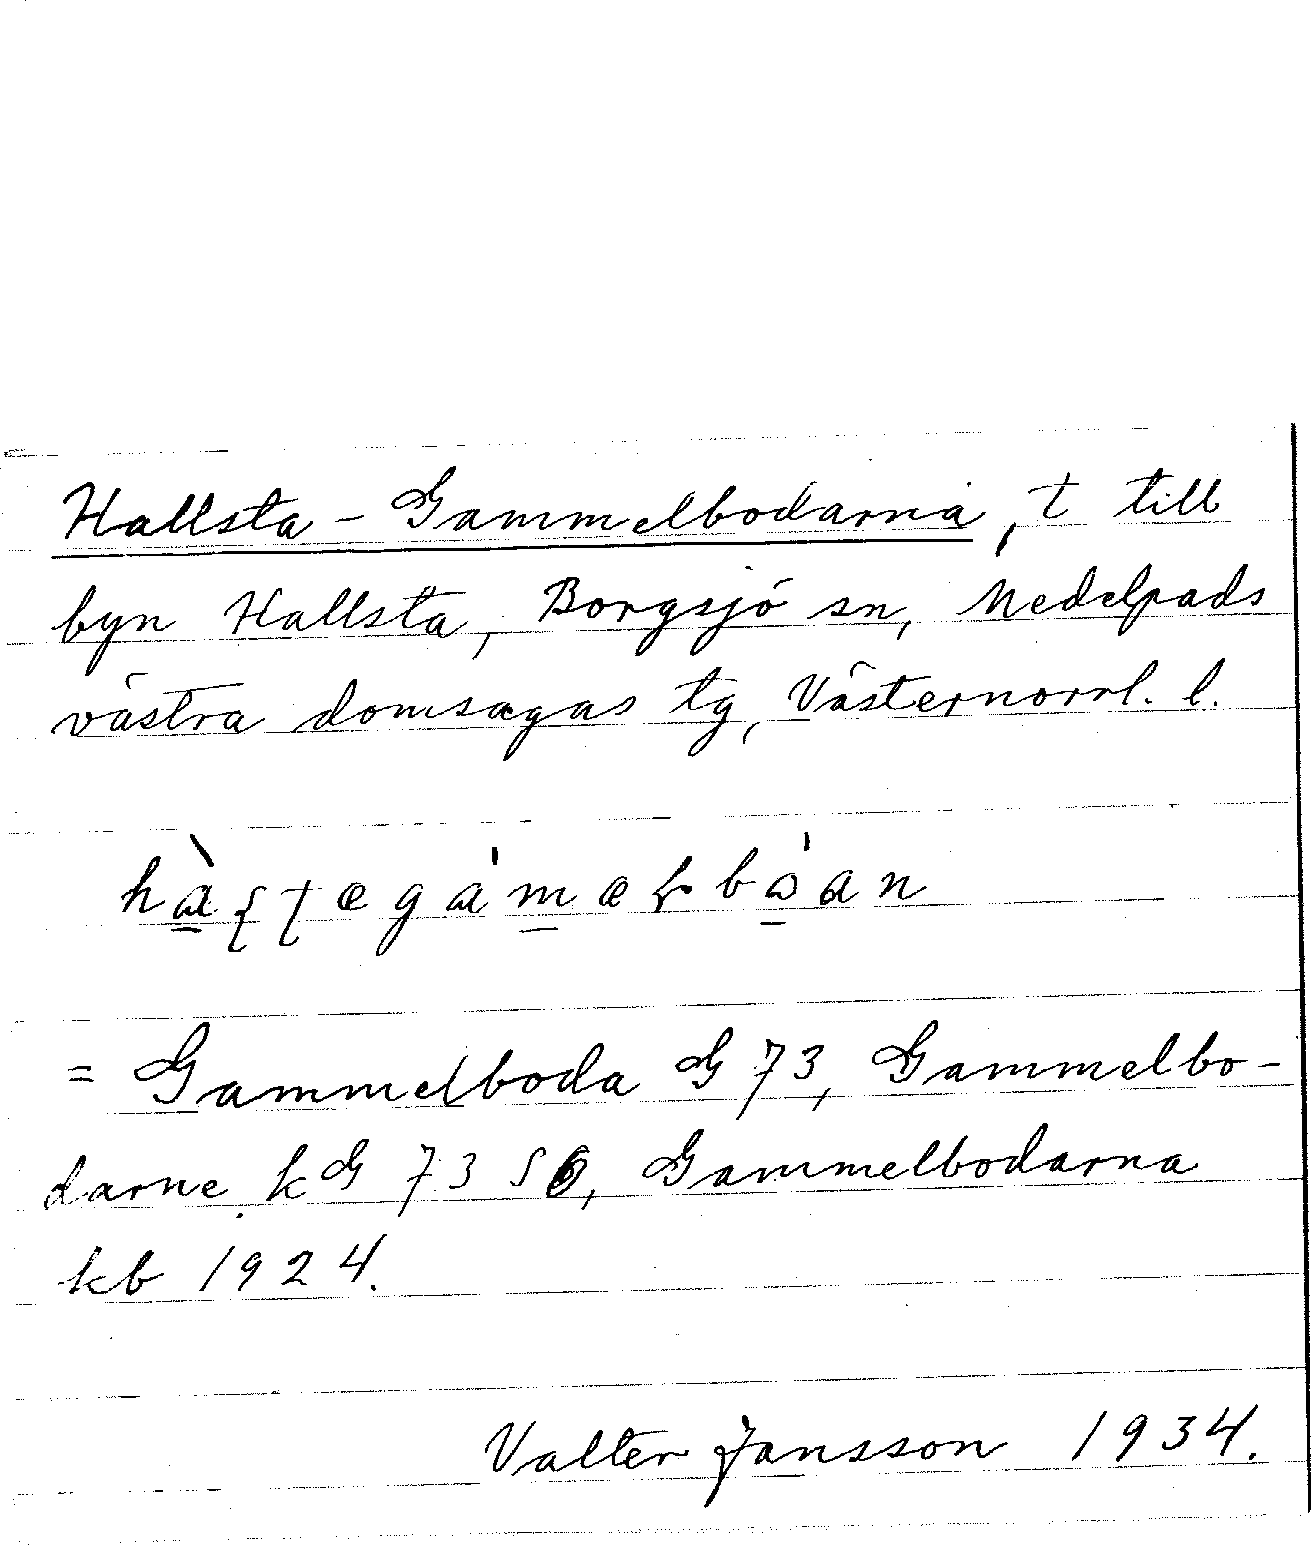 Hallsta-Gammelbodarna, t till
byn Hallsta, Borgsjö sn, Medelpads
västra domsagas tg, Västernorrl. l.
= Gammelboda G 73, Gammelbo-
darne kG 73 SÖ, Gammelbodarna
kb 1924.
Valter Jansson 1934.